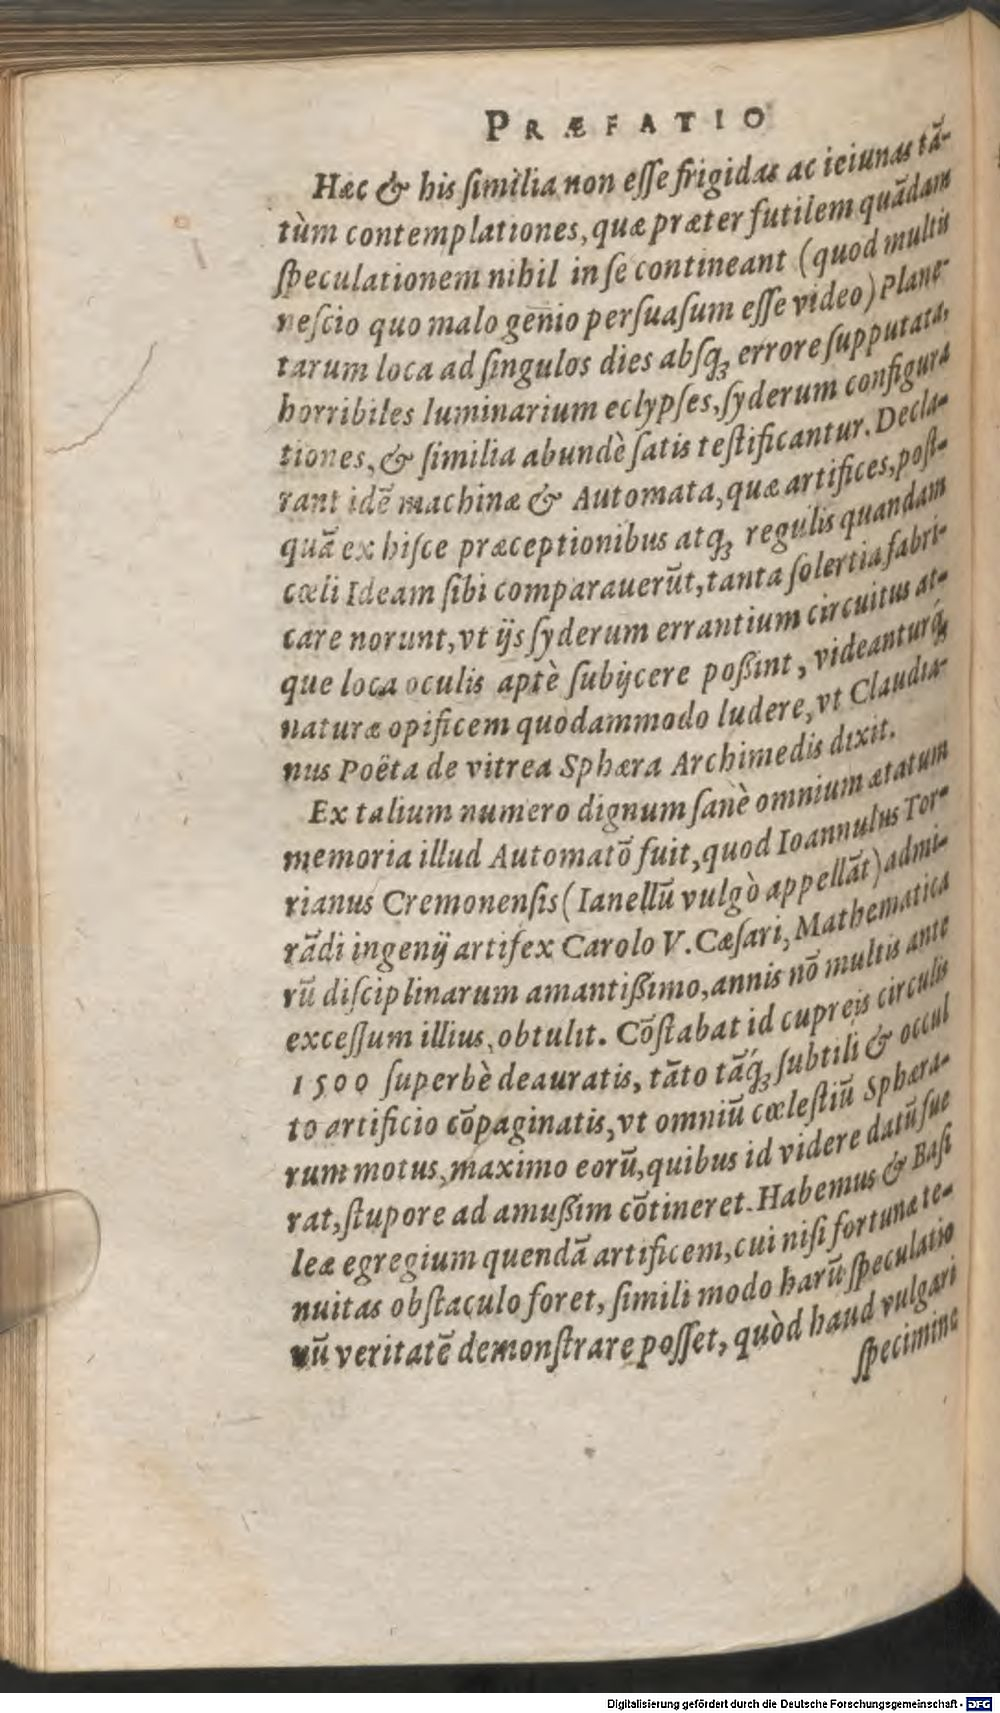 PRÆFATIO
Hæc & his ſimilia non eſſe frigidas ac ieiunas tã-
tùm contemplationes, quæ præter futilem quãdam
ſpeculationem nihil in ſe contineant (quod multis
neſcio quo malo genio perſuaſum eſſe video) Plane-
tarum loca ad ſingulos dies abſq; errore ſupputata,
horribiles luminarium eclypſes, ſyderum configura
tiones, & ſimilia abundè ſatis teſtificantur. Decla-
rant idẽ machinæ & Automata, quæ artifices, poſt-
quã ex hiſce præceptionibus atq; regulis quandam
cœli Ideam ſibi comparauerũt, tanta ſolertia fabri-
care norunt, vt ijs ſyderum errantium circuitus at-
que loca oculis aptè ſubijcere poßint, videanturq́;
naturæ opificem quodammodo ludere, vt Claudia-
nus Poëta de vitrea Sphæra Archimedis dixit.
Ex talium numero dignum ſanè omnium ætatum
memoria illud Automatõ fuit, quod Ioannulus Tor-
rianus Cremonenſis (Ianellũ vulgò appellãt) admi-
rãdi ingenij artifex Carolo V. Cæſari, Mathematica
rũ diſciplinarum amantißimo, annis nõ multis ante
exceſſum illius, obtulit. Cõſtabat id cupreis circulis
1500 ſuperbè deauratis, tãto tãq́; ſubtili & occul
to artificio cõpaginatis, vt omniũ cœleſtiũ Sphæra-
rum motus, maximo eorũ, quibus id videre datũ fue
rat, ſtupore ad amußim cõtineret. Habemus & Baſi
leæ egregium quendã artificem, cui niſi fortunæ te-
nuitas obſtaculo foret, ſimili modo harũ ſpeculatio
nũ veritatẽ demonſtrare poſſet, quòd haud vulgari
ſpecimine
Digitalisierung gefördert durch die Deutsche Forschungsgemeinschaft - DFG